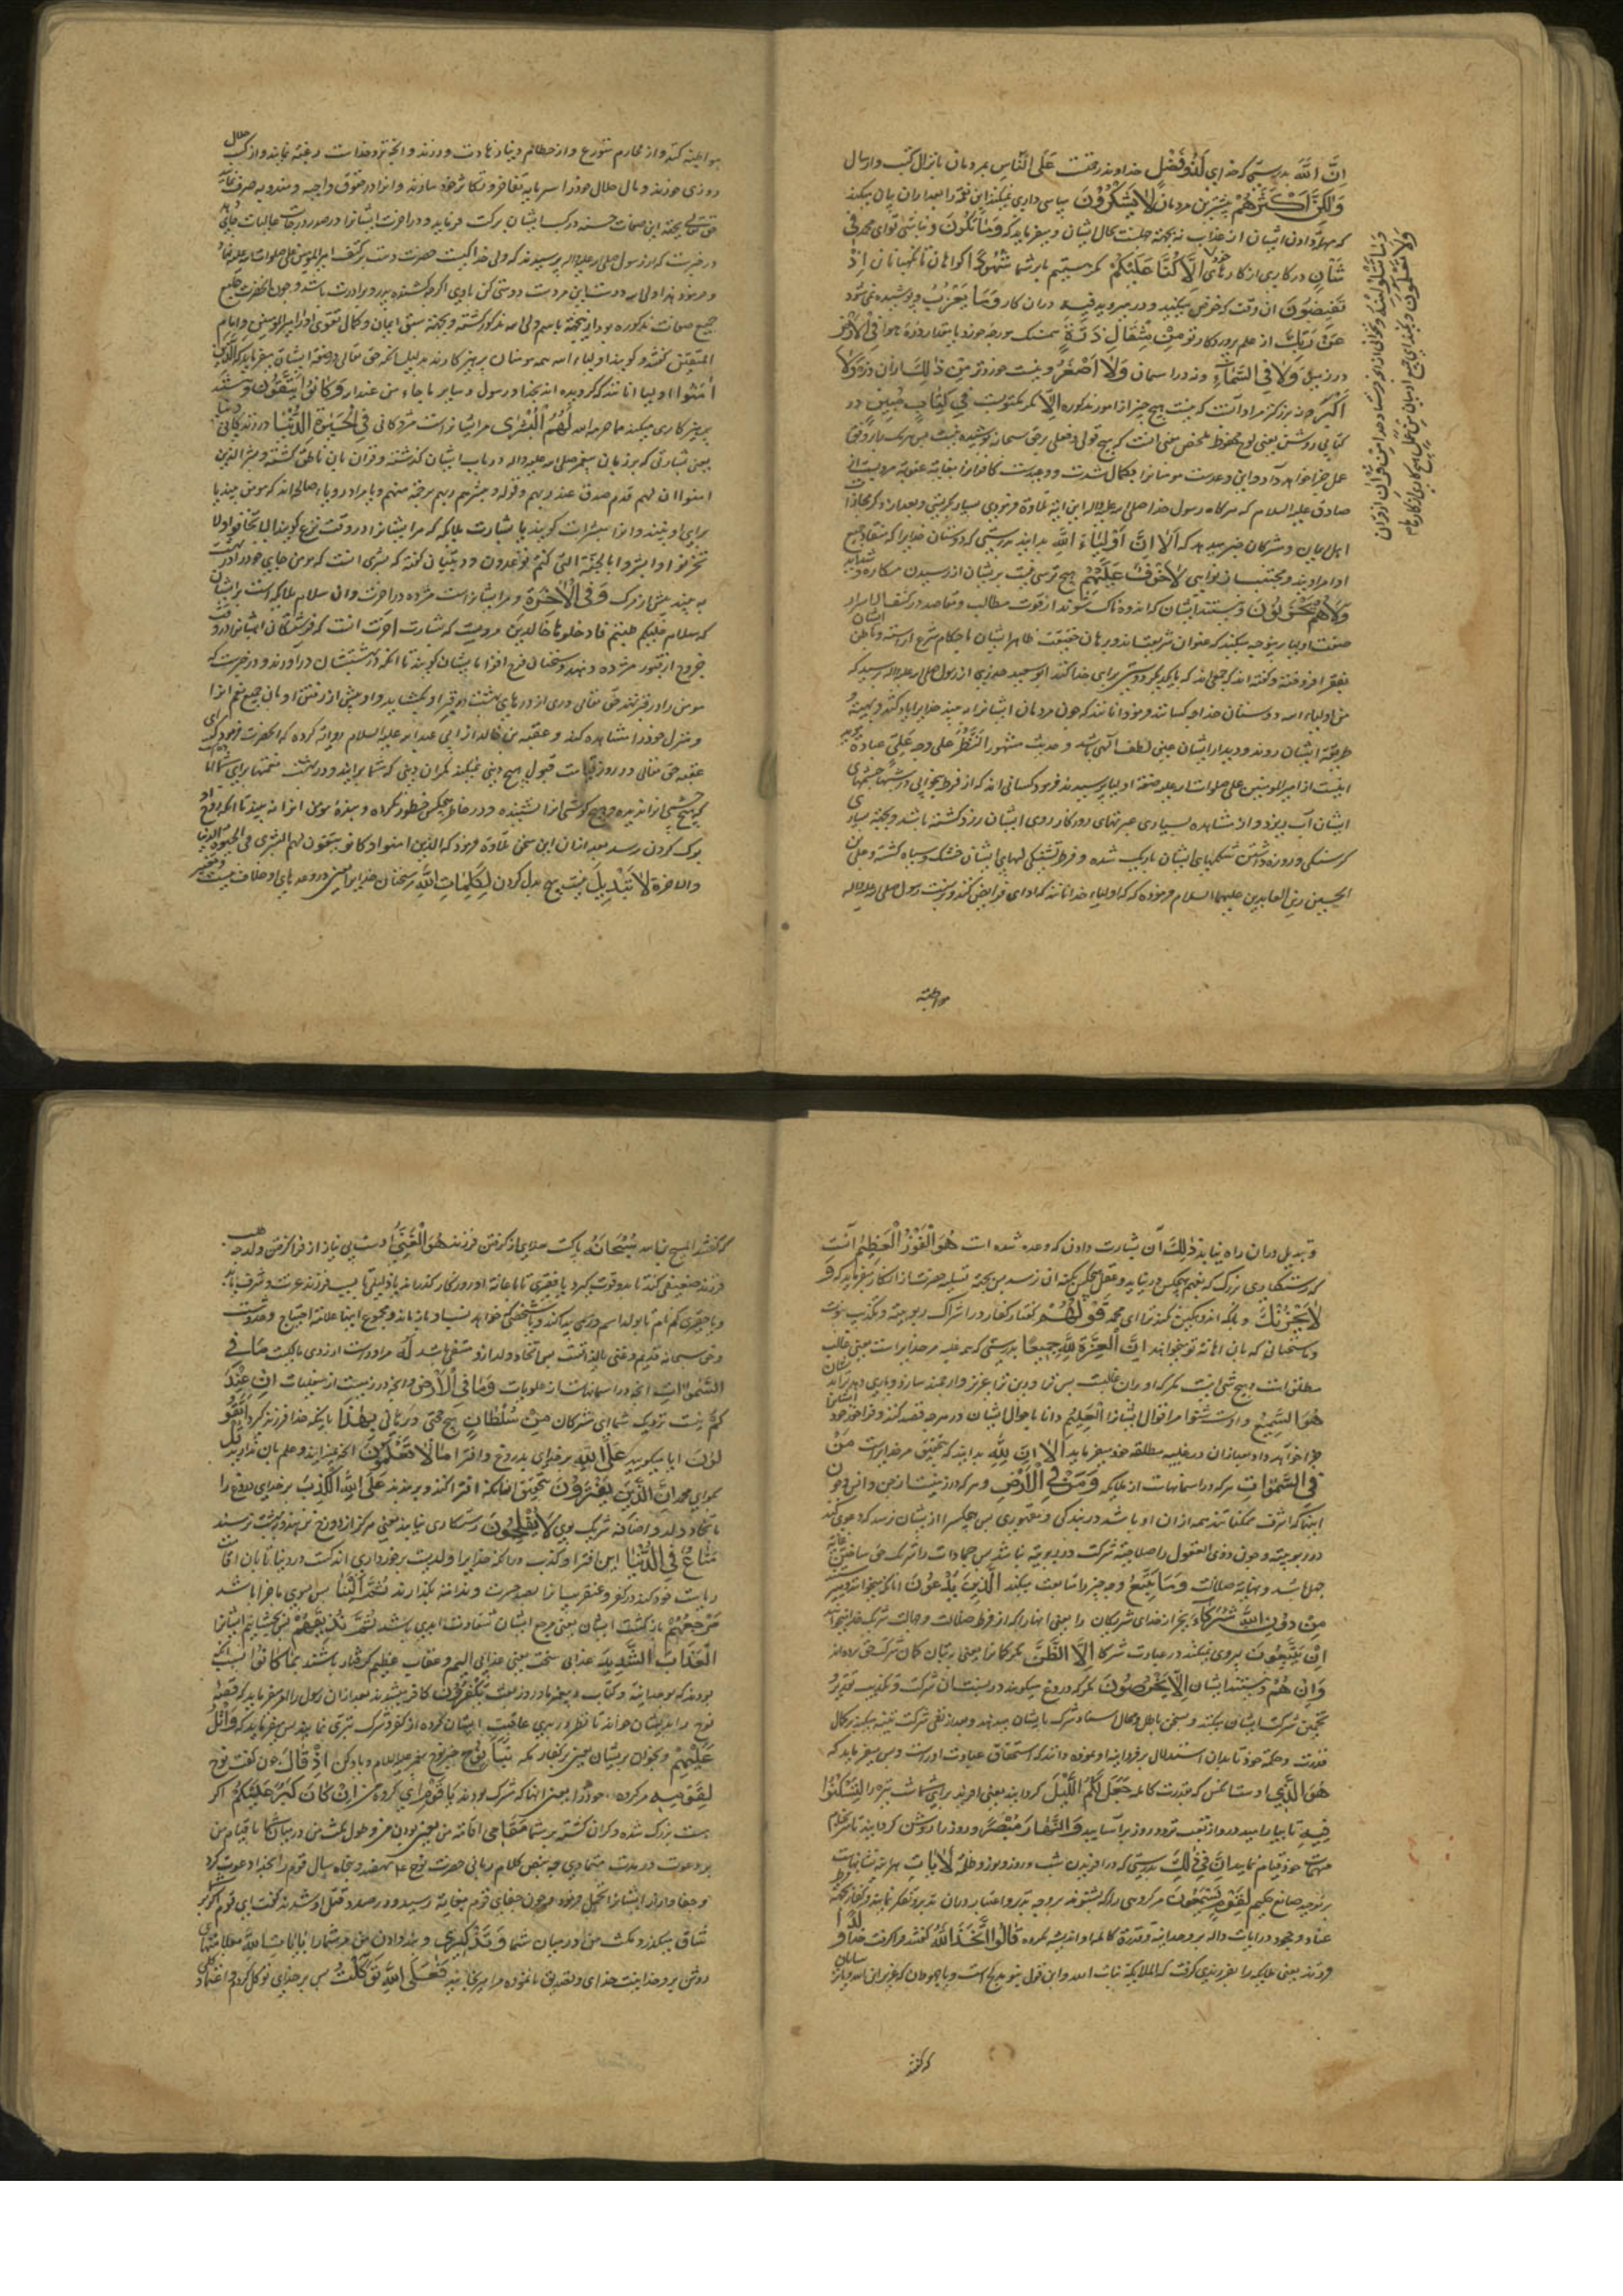 اِنَّ اللّهَ بدرستی که خدای لَذُو فَضْلٍ خداوند رحمت عَلَی النَّاسِ بمردمان بانزال کتب و ارسال
وَلٰکِنَّ اَکْثَرَهُمْ بیشترین مردمان لَا یَشْکُرُونَ سپاس داری نمیکنند این نعمة را بعد ازان بیان میکند
که مهلة دادن ایشان از عذاب نه بجهة حال ایشان و میفرماید که وَمَا تَکُونُ و نباشی تو ای محمد فی
شَأْنٍ در کاری از کارهای اِلَّا کُنَّا عَلَیْکُمْ مگر هستیم ما بر شما شُهُودًا گواهان و نگهبانان اِذْ
تُفِیضُونَ ان وقت که خوض میکنید و در میروید فِیهِ دران کار وَمَا یَعْزُبُ و پوشیده نمی شود
عَنْ رَبِّكَ از علم پروردگار تو مِنْ مِثْقَالِ ذَرَّةٍ همسنک مورچه خورد یا بمقدار ذره هوا فِی الْاَرْضِ
در زمین وَلَا فِی السَّمَاءِ و نه در اسمان وَلَا اَصْغَرَ و نیست خوردتر مِنْ ذٰلِكَ ازان ذره وَلَا
اَکْبَرَ و نه بزرکتر مراد آنست که نیست هیچ چیز از امور مذکوره اِلَّا مگر مکتوبست فِی کِتَابٍ مُبِینٍ در
کتابی روشن یعنی لوح محفوظ ملخص معنی انست که هیچ قولی و فعلی بر حق سبحانه پوشیده نیست پس هریک را بر وفق
عمل جزا خواهد داد و این وعده است مومنانرا بکمال
صادق علیه السلام که هر کاه رسول خدا صلی الله علیه و اله این ایة تلاوة فرمودی بسیار کریستی و بعد از ذکر
اهل ایمان و مشرکان خبر میدهد که اَلَا اِنَّ اَوْلِیَاءَ اللّهِ بدانید بدرستی که دوستان خدای را که
اوامر اویند و مجتنب از نواهی لَا خَوْفٌ عَلَیْهِمْ هیچ ترسی نیست بریشان از رسیدن مکاره و شداید
وَلَا هُمْ یَحْزَنُونَ و نیستند ایشان که اندوهناک شوند از فوت مطالب و مقاصد در کشف الاسرار
صفت اولیا برین وجه میکند که عنوان شریعت اند و برهان حقیقت ظاهر ایشان باحکام شرع اراسته و باطن ایشان
بفقر افروخته و کفته اند که جمعی اند که با یکدیکر دوستی برای خدا کنند ابو سعید خدری از رسول صلی الله علیه و اله پرسید که
من اولیاء الله دوستان خدا چه کسانند فرمود انانند که چون مردمان ایشانرا ببینند خدایرا یاد کنند و
طریقة ایشان روند و دیدار ایشان عین لطف الهی باشد و حدیث مشهور النظر علی وجه علی عبادة
اینست از امیر المومنین علی صلوات الله علیه صفة اولیا پرسیدند فرمود کسانی اند که از فرط بیخوابی در شبها چشمهای
ایشان آب ریزد و از مشاهده بسیاری عبرتهای روزکار روی ایشان زرد کشته باشد و بجهة بسیاری
کرسنکی و روزه داشتن شکمهای ایشان باریک شده و فرط تشنکی لبهای ایشان خشک و سیاه کشته و علی بن
الحسین زین العابدین علیهما السلام فرموده که اولیاء خدا انانند که ادای فرایض کنند و بر سنت رسول صلی الله علیه و اله
مواظبة
وَمَا تَتْلُوا مِنْهُ و نخوانی از انچه فرستاده خداست مِنْ قُرْآنٍ از قران
وَلَا تَعْمَلُونَ و نکنید ای جمیع ادمیان مِنْ عَمَلٍ هیچ کاری از کارها
مواظبة کنند و از محارم متورع و از حطام دنیا زهادت ورزند و انچه نزد خداست رغبة نمایند و از کسب حلال
روزی خورند و مال حلال خود را سرمایه تفاخر و تکاثر خود نسازند و انرا در حقوق واجبه و مندوبه صرف نمایند
حق تعالی بجهة این صفات حسنه در کسب ایشان برکت فرماید و در اخرت ایشانرا درجات عالیات
در خبرست که از رسول صلی الله علیه و اله پرسیدند که ولی خدا کیست حضرت دست بر کتف امیر المومنین علی صلوات الله علیه نهاد
و فرمود هذا ولی الله دوست این مرد است دوستی کن با وی اکرچه کشنده پدر و برادرت باشد و چون انحضرت جامع
جمیع صفات مذکوره بود ازینجهة باسم ولی الله مذکور کشته و بجهة سبق ایمان و کمال تقوی او را امیر المومنین و امام
المتقین کفتند و کویند اولیاء الله همه مومنان پرهیزکارند بدلیل انکه حق تعالی در صفة ایشان میفرماید که اَلَّذِینَ
آمَنُوا اولیا انانند که کرویده اند بخدا و رسول و سایر ما جاء من عند الله وَکَانُوا یَتَّقُونَ و هستند
پرهیزکاری میکنند از ما حرم الله لَهُمُ الْبُشْرٰی مر ایشانراست مژدکانی فِی الْحَیٰوةِ الدُّنْیَا در زندکانی
یعنی بشارتی که بر زبان پیغمبر صلی الله علیه و اله در باب ایشان کذشته و قران بان ناطق کشته و بشر الذین
امنوا ان لهم قدم صدق عند ربهم و قوله و یبشرهم ربهم برحمة منهم و یا مراد رویاء صالحه اند که مومن بیند یا
برای او بینند و انرا مبشرات کویند یا بشارت ملایکه که مر ایشانرا در وقت نزع کویند الا تخافوا و لا
تحزنوا و ابشروا بالجنة التی کنتم توعدون و در تبیان کفته که بشری انست که مومن جای خود را در بهشت
به بیند پیش از مرک وَفِی الْاٰخِرَةِ و مر ایشانراست مژده در اخرت و ان سلام ملایکه است بر ایشان
که سلام علیکم طبتم فادخلوها خالدین مرویست که بشارت اخرت انست که فرشتکان ایشانرا در وقت
خروج از قبور مژده دهند و سخنان فرح افزا با ایشان کویند تا انکه در بهشتشان درآورند و در خبرست که
مومن را در قبر نهند حق تعالی دری از درهای بهشت در قبر او بکشاید و او پیش از رفتن او بان جمیع نعم انرا
و منزل خود را مشاهده کند و عقبة بن خالد از ابی عبد الله علیه السلام روایة کرده که انحضرت فرمود که ای
عقبه حق تعالی در روز قیامت قبول هیچ دینی نمیکند مکر ان دینی که شما برانید و در بهشت نعمتها برای شماست
که هیچ چشمی انرا ندیده و هیچ کوشی انرا نشنیده و در خاطر هیچکس خطور نکرده و بنده مومن انرا نه بیند تا انکه
مرک کردن رسد بعد ازان این سخن تلاوة فرمود که الذین امنوا و کانوا یتقون لهم البشری فی الحیوة الدنیا
و الاخرة لَا تَبْدِیلَ نیست هیچ بدل کردن لِکَلِمَاتِ اللّهِ مر سخنان خدایرا یعنی در وعدهای او خلاف نیست و تغییر
و تبدیل دران راه نیابد ذٰلِكَ آن بشارت دادن که وعده شده است هُوَ الْفَوْزُ الْعَظِیمُ آنست
که رستکاری بزرک که بفهم هیچکس در نیاید و عقل هیچکس بکنه ان نرسد پس بجهة تسلیه حضرت از انکار میفرماید که وَ
لَا یَحْزُنْكَ و باید که اندوهکین نکند ترا ای محمد قَوْلُهُمْ کفتار کفار در اشراک بربوبیة و تکذیب نبوت
و سخنانی که بان اهانة تو میخواهند اِنَّ الْعِزَّةَ لِلّهِ جَمِیعًا بدرستی که همه غلبه مر خدایراست یعنی غالب
مطلق است و هیچ شی نیست مکر که او بران غالبست پس ترا و دین ترا عزیز و ارجمند سازد و یاری دهد بر ایشان
هُوَ السَّمِیعُ و اوست شنوا مر اقوال ایشانرا الْعَلِیمُ دانا باحوال ایشان در هرچه قصد کنند و فراخور خود
جزا خواهد داد بعد ازان در غلبه مطلقه خود میفرماید اَلَا اِنَّ لِلّهِ بدانید که بتحقیق مر خدایراست مَنْ
فِی السَّمٰوَاتِ هر که در اسمانهاست از ملایکه وَمَنْ فِی الْاَرْضِ و هر که در زمینست از جن و انس و چون
اینها که اشرف ممکناتند همه ازان او باشد در بندکی و مقهوری پس هیچکس را از ایشان نرسد که دعوی کند
در ربوبیة و چون ذوی العقول را صلاحیة شرکت در ربوبیة نباشد پس جمادات را شریک حق ساختن غایة
جهل باشد و نهایة ضلالت وَمَا یَتَّبِعُ و چه چیز را متابعت میکنند الَّذِینَ یَدْعُونَ انانکه میخوانند و میپرستند
مِنْ دُونِ اللّهِ شُرَکَاءَ بجز از خدای شریکان را یعنی انها را که از فرط ضلالت و جهالت شریک خدا میخوانند
اِنْ یَتَّبِعُونَ پیروی نمیکنند در عبادت شرکا اِلَّا الظَّنَّ مکر کمان را یعنی بکمان شرکت حق برده اند
وَاِنْ هُمْ و نیستند ایشان اِلَّا یَخْرُصُونَ مکر که دروغ میکویند در نسبت ان شرکت و بکذب تقدیر و
تخمین شرکت ایشان میکنند و بسخن باطل و محال اسناد شرک بایشان میدهند و بعد از نفی شرکت تنبیه میکند بر کمال
قدرت و حکمة خود تا بدان استدلال بر فردانیة او نموده دانند که استحقاق عبادت اوراست و بس میفرماید که
هُوَ الَّذِی اوست انکس که بقدرت کامله جَعَلَ لَکُمُ اللَّیْلَ کردانید یعنی افرید برای شما شب تیره را لِتَسْکُنُوا
فِیهِ تا بیارامید درو از تعب تردد روز برآسایید وَالنَّهَارَ مُبْصِرًا و روز را روشن کردانید تا بسرانجام
مهمات خود قیام نمایید اِنَّ فِی ذٰلِكَ بدرستی که در افریدن شب و روز و نور و ظلمة لَاٰیَاتٍ هراینه نشانهاست
بر توحید صانع حکیم لِقَوْمٍ یَسْمَعُونَ مر کروهی را که بشنوند بر وجه تدبر و اعتبار و دران تدبر و تفکر نمایند و کفار بجهة فرط
عناد و جحود در ایات داله بر وحدانیة و قدرة کامله او اندیشه نکرده قَالُوا اتَّخَذَ اللّهُ کفتند فراکرفت خدا وَلَدًا
فرزند یعنی ملایکه را بفرزندی کرفت که الملایکة بنات الله و این قول بنو مدلج است و یا جهودان که عزیر ابن الله و یا ترسایان
که کفتند
که کفتند المسیح ابن الله سُبْحَانَهُ پاکست خدای از کرفتن فرزند هُوَ الْغَنِیُّ اوست بی نیاز از فرا کرفتن ولد چه
فرزند ضعیفی کند تا بدو قوت کیرد یا فقیری تا باعانة او روزکار کذراند یا ذلیلی تا بسبب فرزند عزت و شرف یابد
و یا حقیری کم نام تا بولد اسم و رسمی پیدا کند و یا شخصی که خواهد نسب او باز ماند و مجموع اینها علامة احتیاج و
و حق سبحانه قدیم و غنی بالذاتست پس اتخاذ ولد ازو منتفی باشد لَهُ مر اوراست از روی مالکیت مَا فِی
السَّمٰوَاتِ انچه در اسمانهاست از علویات وَمَا فِی الْاَرْضِ و انچه در زمینست از سفلیات اِنْ عِنْدَ
کُمْ نیست نزدیک شما ای مشرکان مِنْ سُلْطَانٍ هیچ حجتی و برهانی بِهٰذَا باینکه خدا فرزند کیرد اَتَقُو
لُونَ ایا میکویید عَلَی اللّهِ بر خدای بدروغ و افترا مَا لَا تَعْلَمُونَ انچه نمیدانید و علم بان ندارید قُلْ
بکو ای محمد اِنَّ الَّذِینَ یَفْتَرُونَ بتحقیق انانکه افترا کنند و بربندند عَلَی اللّهِ الْکَذِبَ بر خدای دروغ را
باتخاذ ولد و اضافة شریک بوی لَا یُفْلِحُونَ رستکاری نیابند یعنی هرکز از دوزخ نرهند و ببهشت نرسند
مَتَاعٌ فِی الدُّنْیَا این افترا و کذب در انکه خدایرا ولدیست برخورداری اندکست در دنیا تا بان اقامت
ریاست خود کنند در کفر و عنقریب انرا بصد حسرت و ندامة بکذارند ثُمَّ اِلَیْنَا پس بسوی ما خواهد باشد
مَرْجِعُهُمْ بازکشت ایشان یعنی مرجع ایشان شقاوت ابدی باشد ثُمَّ نُذِیقُهُمُ پس بچشانیم ایشانرا
الْعَذَابَ الشَّدِیدَ عذابی سخت یعنی عذابی الیم و عقاب عظیم کرفتار باشند بِمَا کَانُوا بسبب انچه
بودند که بوحدانیة و کتاب و پیغمبر ما و روز بعث یَکْفُرُونَ کافر میشوند بعد ازان رسول را امر میفرماید که قصه
نوح بر ایشان خواند تا نظر در بدی عاقبت ایشان کرده از کفر و شرک تبری نمایند پس میفرماید که وَاتْلُ
عَلَیْهِمْ و بخوان بریشان یعنی بر کفار مکه نَبَاَ نُوحٍ خبر نوح پیغمبر علیه السلام و یاد کن اِذْ قَالَ چون کفت نوح
لِقَوْمِهِ مر کروه خود را یعنی انها که مشرک بودند یَا قَوْمِ ای کروه من اِنْ کَانَ کَبُرَ عَلَیْکُمْ اکر
هست بزرک شده و کران کشته بر شما مَقَامِی اقامة من یعنی بودن من و طول مکث من در میان شما یا قیام من
بر دعوت در مدت متمادی چه بنص کلام ربانی حضرت نوح نهصد و پنجاه سال قوم را بخدا دعوت کرد
و جفا و ازار ایشانرا تحمل فرمود و چون جفای قوم بغایة رسید و در صدد قتل او شدند کفت ای قوم اکر بر
شاق میکذرد مکث من در میان شما وَتَذْکِیرِی و پند دادن من مر شما را بِاٰیَاتِ اللّهِ بعلامتهای
روشن بر وحدانیت خدای و تصدیق نانموده مرا میرنجانید فَعَلَی اللّهِ تَوَکَّلْتُ پس بر خدای توکل کردم و اعتماد